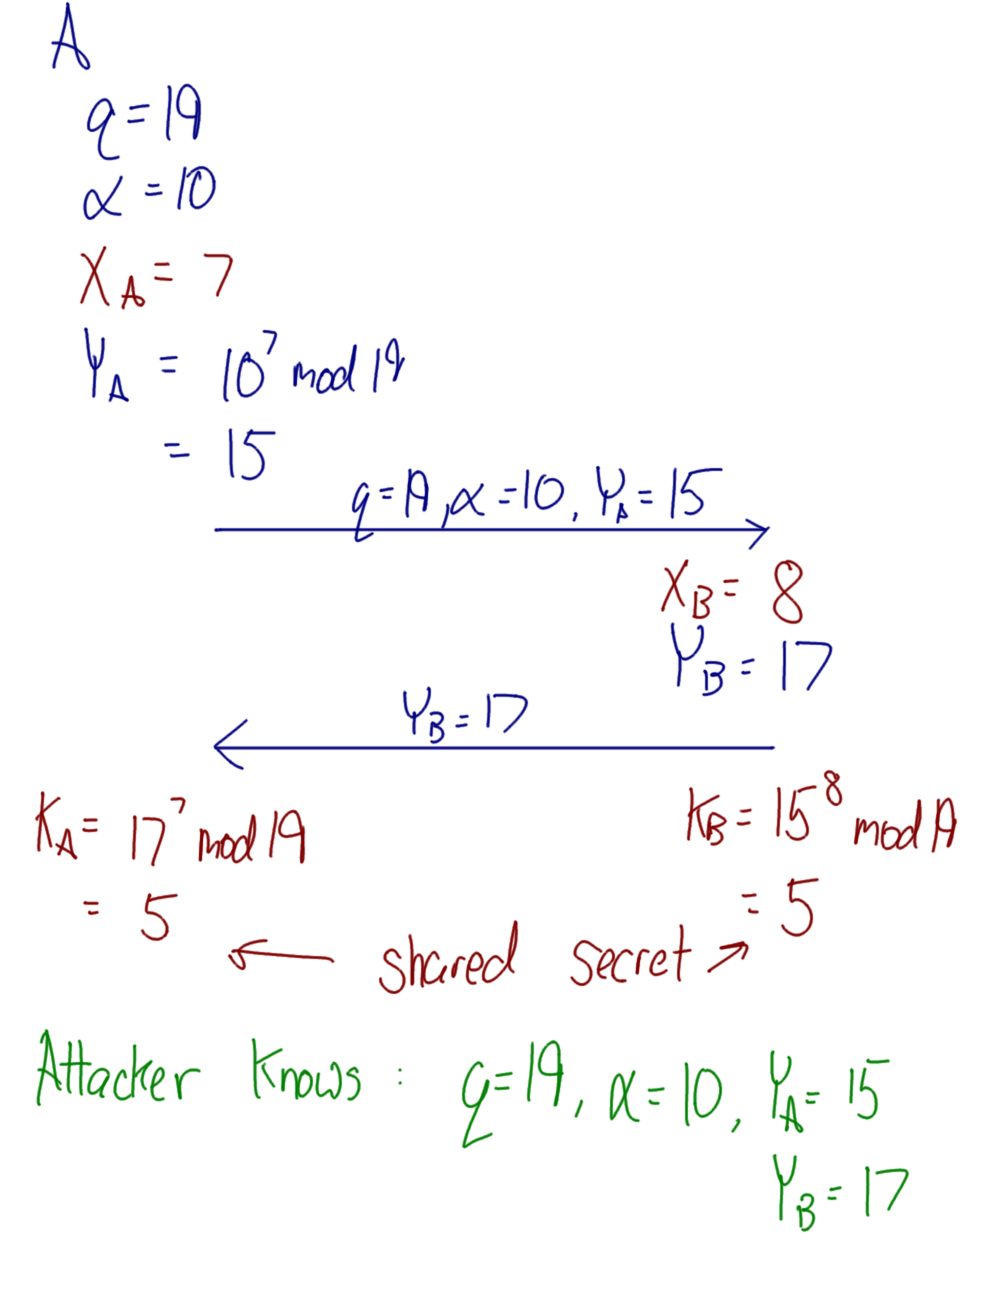 A
q=19
α=10
X_A=7
Y_A = 10^7 mod 19
= 15
q=19, α=10, Y_A=15
X_B=8
Y_B=17
Y_B=17
K_A= 17^7 mod 19
= 5
K_B=15^8 mod 19
= 5
← shared secret →
Attacker Knows: q=19, α=10, Y_A=15
Y_B=17